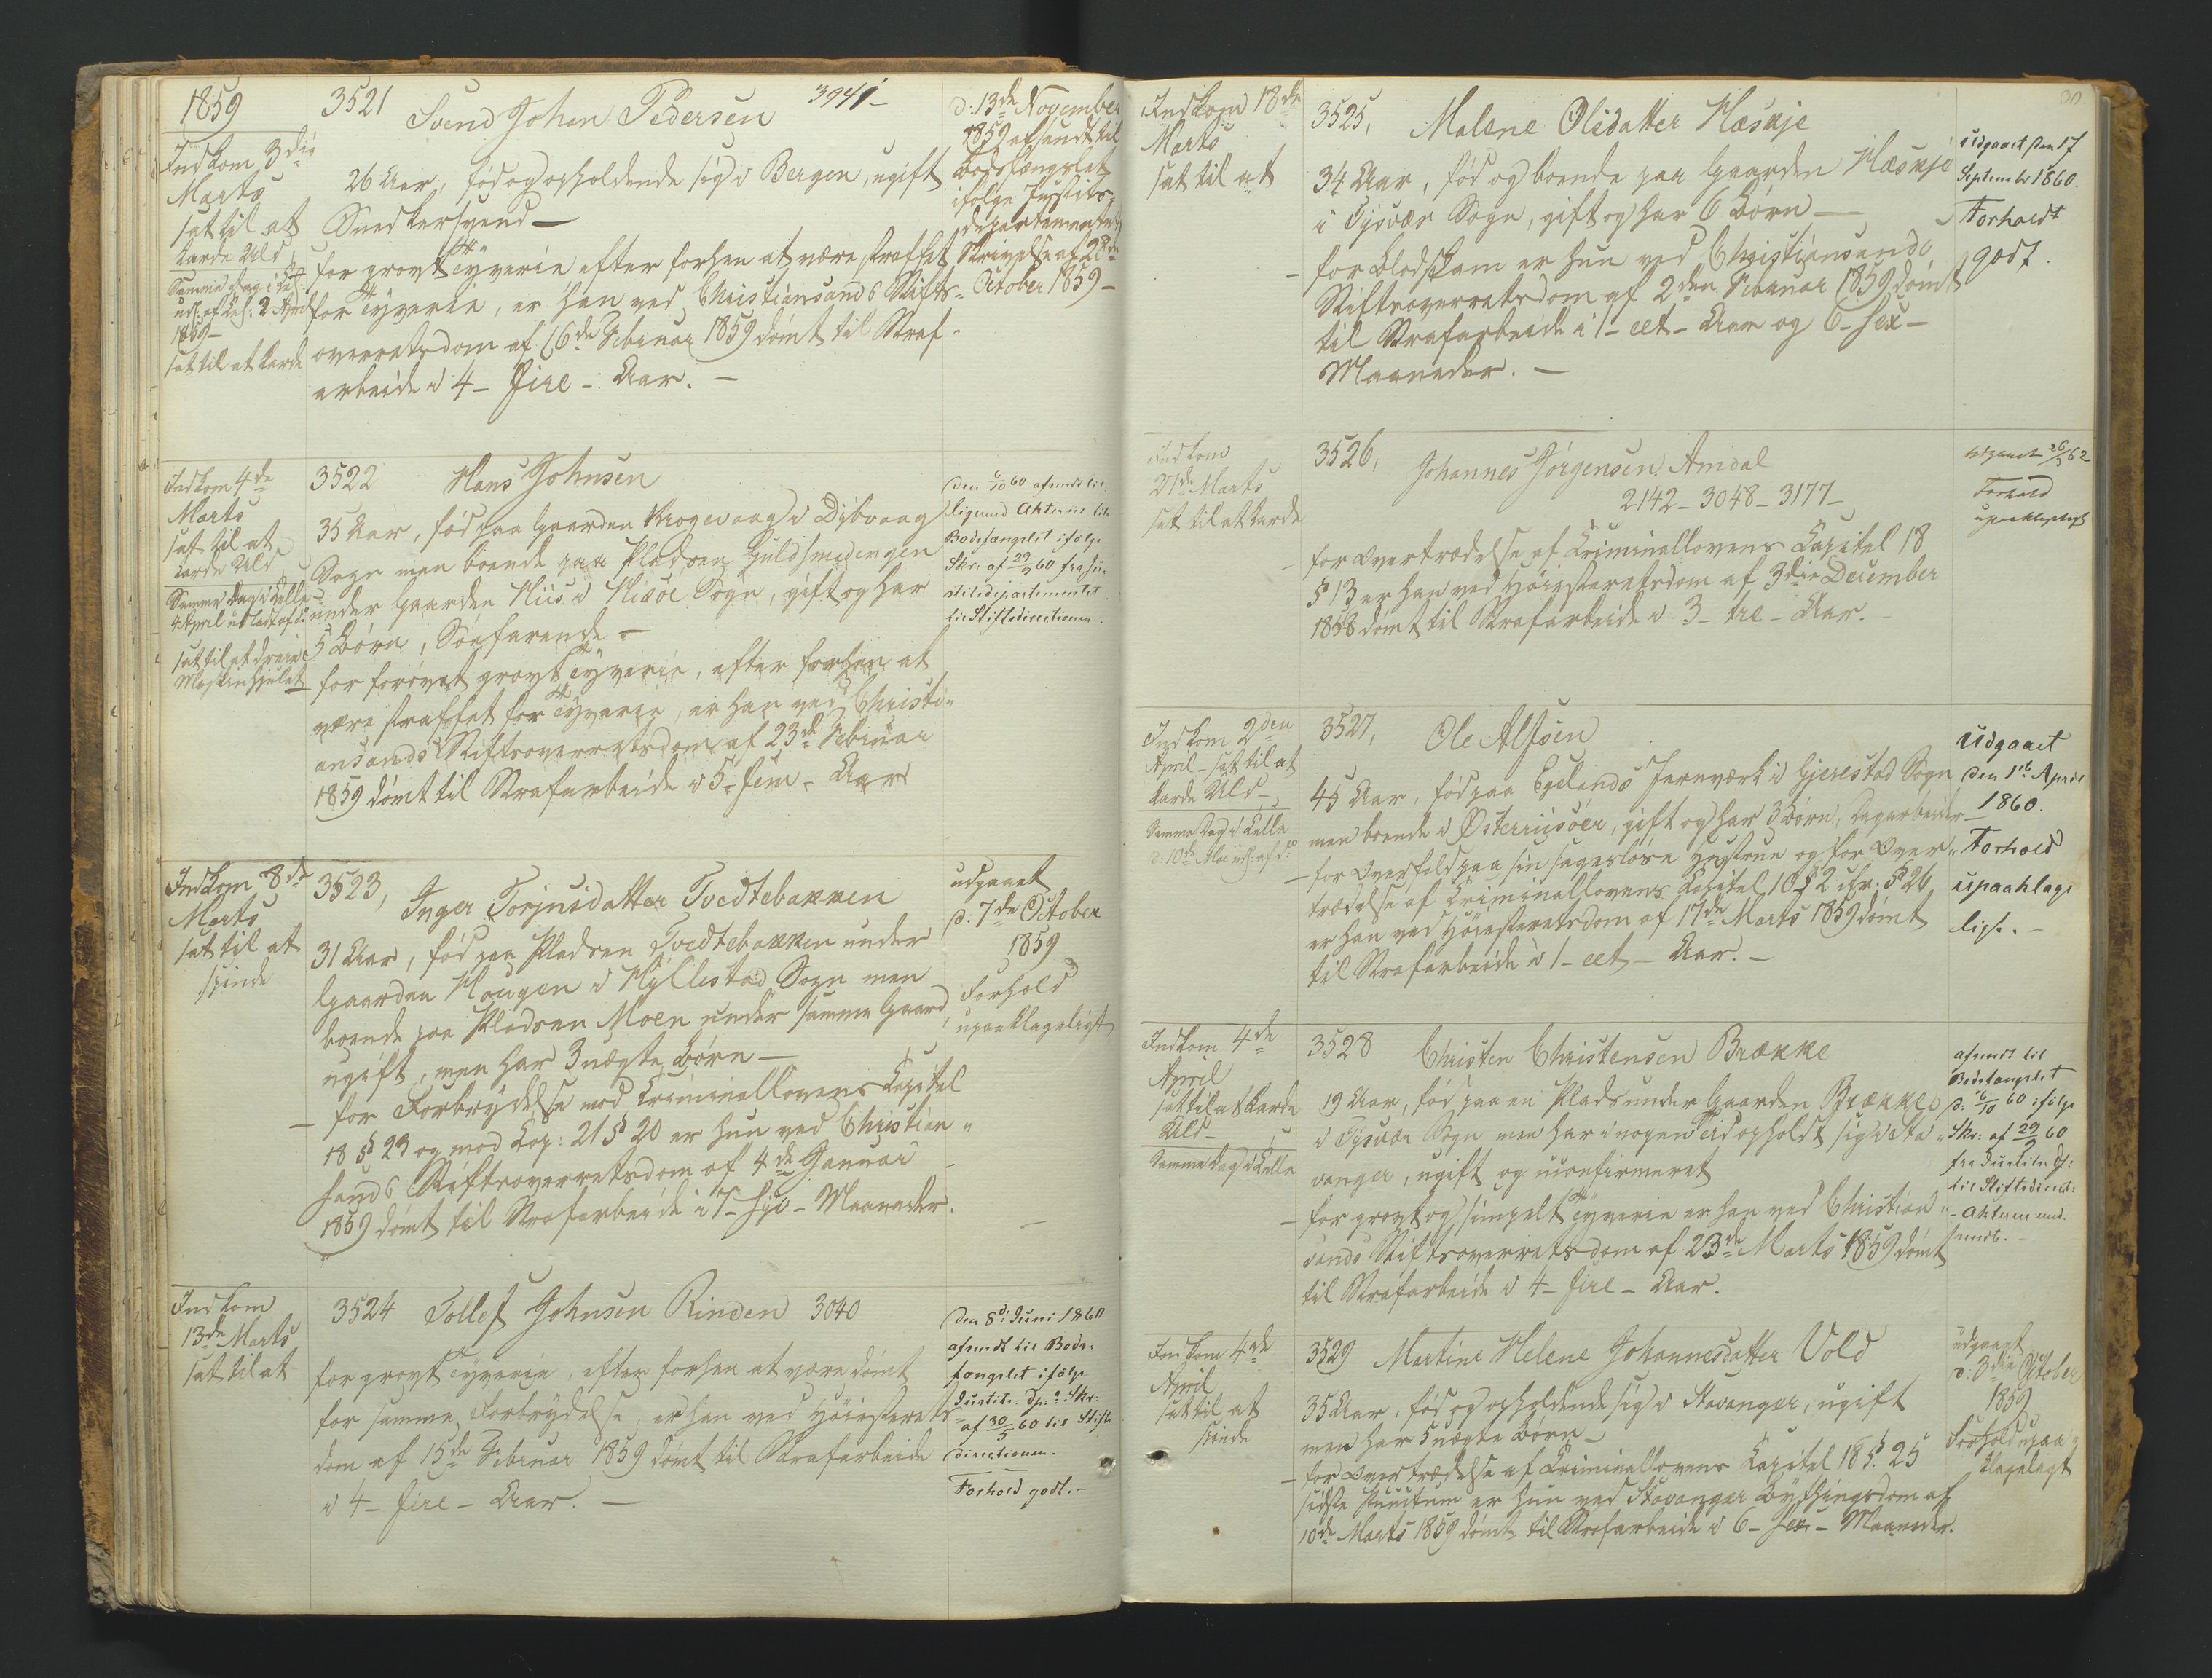 1859
Indkom 3die
Marts
sat til at
karde Uld
Samme Dag i Cel:
uds: af Cel: 2 April
1859
sat til at karde
3521 Svend Johan Pedersen 3941-
26 Aar, fød og opholdende sig i Bergen, ugift
Snedkersvend -
for grovt Tyverie efter forhen at være straffet
for Tyverie, er han ved Christiansands Stifts-
overretsdom af 16de Februar 1859 dømt til Straf-
arbeide i 4 - fire - Aar. -
d: 13de November
1859 afsendt til
Bodsfængslet
ifølge Justits
departementets
Skrivelse af 28de
October 1859 -
Indkom 4de
Marts
sat til at
karde Uld
Samme Dag i Celle
4 April udladt af d:
sat til at dreie
Maskinhjulet
3522 Hans Johnsen
35 Aar, fød paa Gaarden Krogevaag i Dybvaag
Sogn men boende paa Pladsen Guldsmedengen
under Gaarden Hiis i Hisøe Sogn, gift og har
5 Børn, Søefarende -
for forøvet grovt Tyverie, efter forhen at
være straffet for Tyverie, er han ved Christi-
ansands Stiftsoverretsdom af 23de Februar
1859 dømt til Strafarbeide i 5 - fem - Aar
Den 6/10 60 afsendt til
ligemed Akterne til
Bodsfængslet ifølge
Skr: af 29/9 60 fra Ju-
stitsdepartementet
til Stiftsdirectionen.
Indkom 8de
Marts
sat til at
spinde
3523, Inger Torjusdatter Tvedtebakken
31 Aar, fød paa Pladsen Tvedtebakken under
Gaarden Haugen i Hyllestad Sogn men
boende paa Pladsen Moen under samme Gaard,
ugift, men har 3 uægte Børn -
- for Forbrydelse mod Criminallovens Capitel
18 § 23 og mod Cap: 21 § 20 er hun ved Christian-
sands Stiftsoverretsdom af 4de Januar
1859 dømt til Strafarbeide i 7 - syv - Maaneder.
udgaaet
d: 7de October
1859
Forhold
upaaklageligt
Indkom
13de Marts
sat til at
3524 Tollef Johnsen Rinden 3040
for grovt Tyverie, efter forhen at være dømt
for samme Forbrydelse, er han ved Høiesterets-
dom af 15de Februar 1859 dømt til Strafarbeide
i 4 - fire - Aar. -
Den 8de Juni 1860
afsendt til Bods-
fængslet ifølge
Justits: Dp:s Skr:
af 30/5 60 til Stifts-
directionen.
Forhold godt. -
30
Indkom 18de
Marts
sat til at
3525, Malene Olsdatter Hæskje
34 Aar, fød og boende paa Gaarden Hæskje
i Tysvær Sogn, gift og har 6 Børn -
- for Blodskam er hun ved Christiansands
Stiftsoverretsdom af 2den Februar 1859 dømt
til Strafarbeide i 1 - eet - Aar og 6 - sex -
Maaneder. -
Udgaaet den 17
September 1860.
Forholdt
godt.
Indkom
21de Marts
sat til at karde
3526, Johannes Jørgensen Amdal
2142 - 3048 - 3177 -
for Overtrædelse af Criminallovens Capitel 18
§ 13 er han ved Høiesteretsdom af 3die December
1858 dømt til Strafarbeide i 3 - tre - Aar. -
udgaaet 26/3 62
Forhold
upaaklageligt
Indkom 2den
April - sat til at
karde Uld -
Samme Dag i Celle
d: 10de Mai uds: af do
3527, Ole Alfsen
45 Aar, fød paa Egelands Jernværk i Gjerestad Sogn
men boende i Østerriisøer, gift og har 3 Børn, Dagarbeider -
- for Overfald paa sin sagesløse Hustrue og for Over-
trædelse af Criminallovens Capitel 10 § 2 cfr. § 26
er han ved Høiesteretsdom af 17de Marts 1859 dømt
til Strafarbeide i 1 - eet - Aar. -
Udgaaet
den 1ste April
1860.
Forhold
upaaklage
ligt. -
Indkom 4de
April
sat til at karde
Uld -
Samme Dag i Celle
3528 Christen Christensen Brække
19 Aar, fød paa en Plads under Gaarden Brække
i Tysvær Sogn men har i nogen Tid opholdt sig i Sta-
vanger, ugift og uconfirmeret
- for grovt og simpelt Tyverie er han ved Christian-
sands Stiftsoverretsdom af 23de Marts 1859 dømt
til Strafarbeide i 4 - fire - Aar.
afsendt til
Bodsfængslet
d: 6/10 60 ifølge
Skr: af 29/9 60
fra Justits Dp:
til Stiftsdirect:
- Akterne med-
sendt. -
Indkom 4de
April
sat til at
spinde
3529 Martine Helene Johannesdatter Vold
35 Aar, fød og opholdende sig i Stavanger, ugift
men har 5 uægte Børn -
- for Overtrædelse af Criminallovens Capitel 18 § 25
sidste Punctum er hun ved Stavanger Bythingsdom af
10de Marts 1859 dømt til Strafarbeide i 6 - sex - Maaneder.
udgaaet
d: 3die October
1859
Forhold upaa-
klageligt